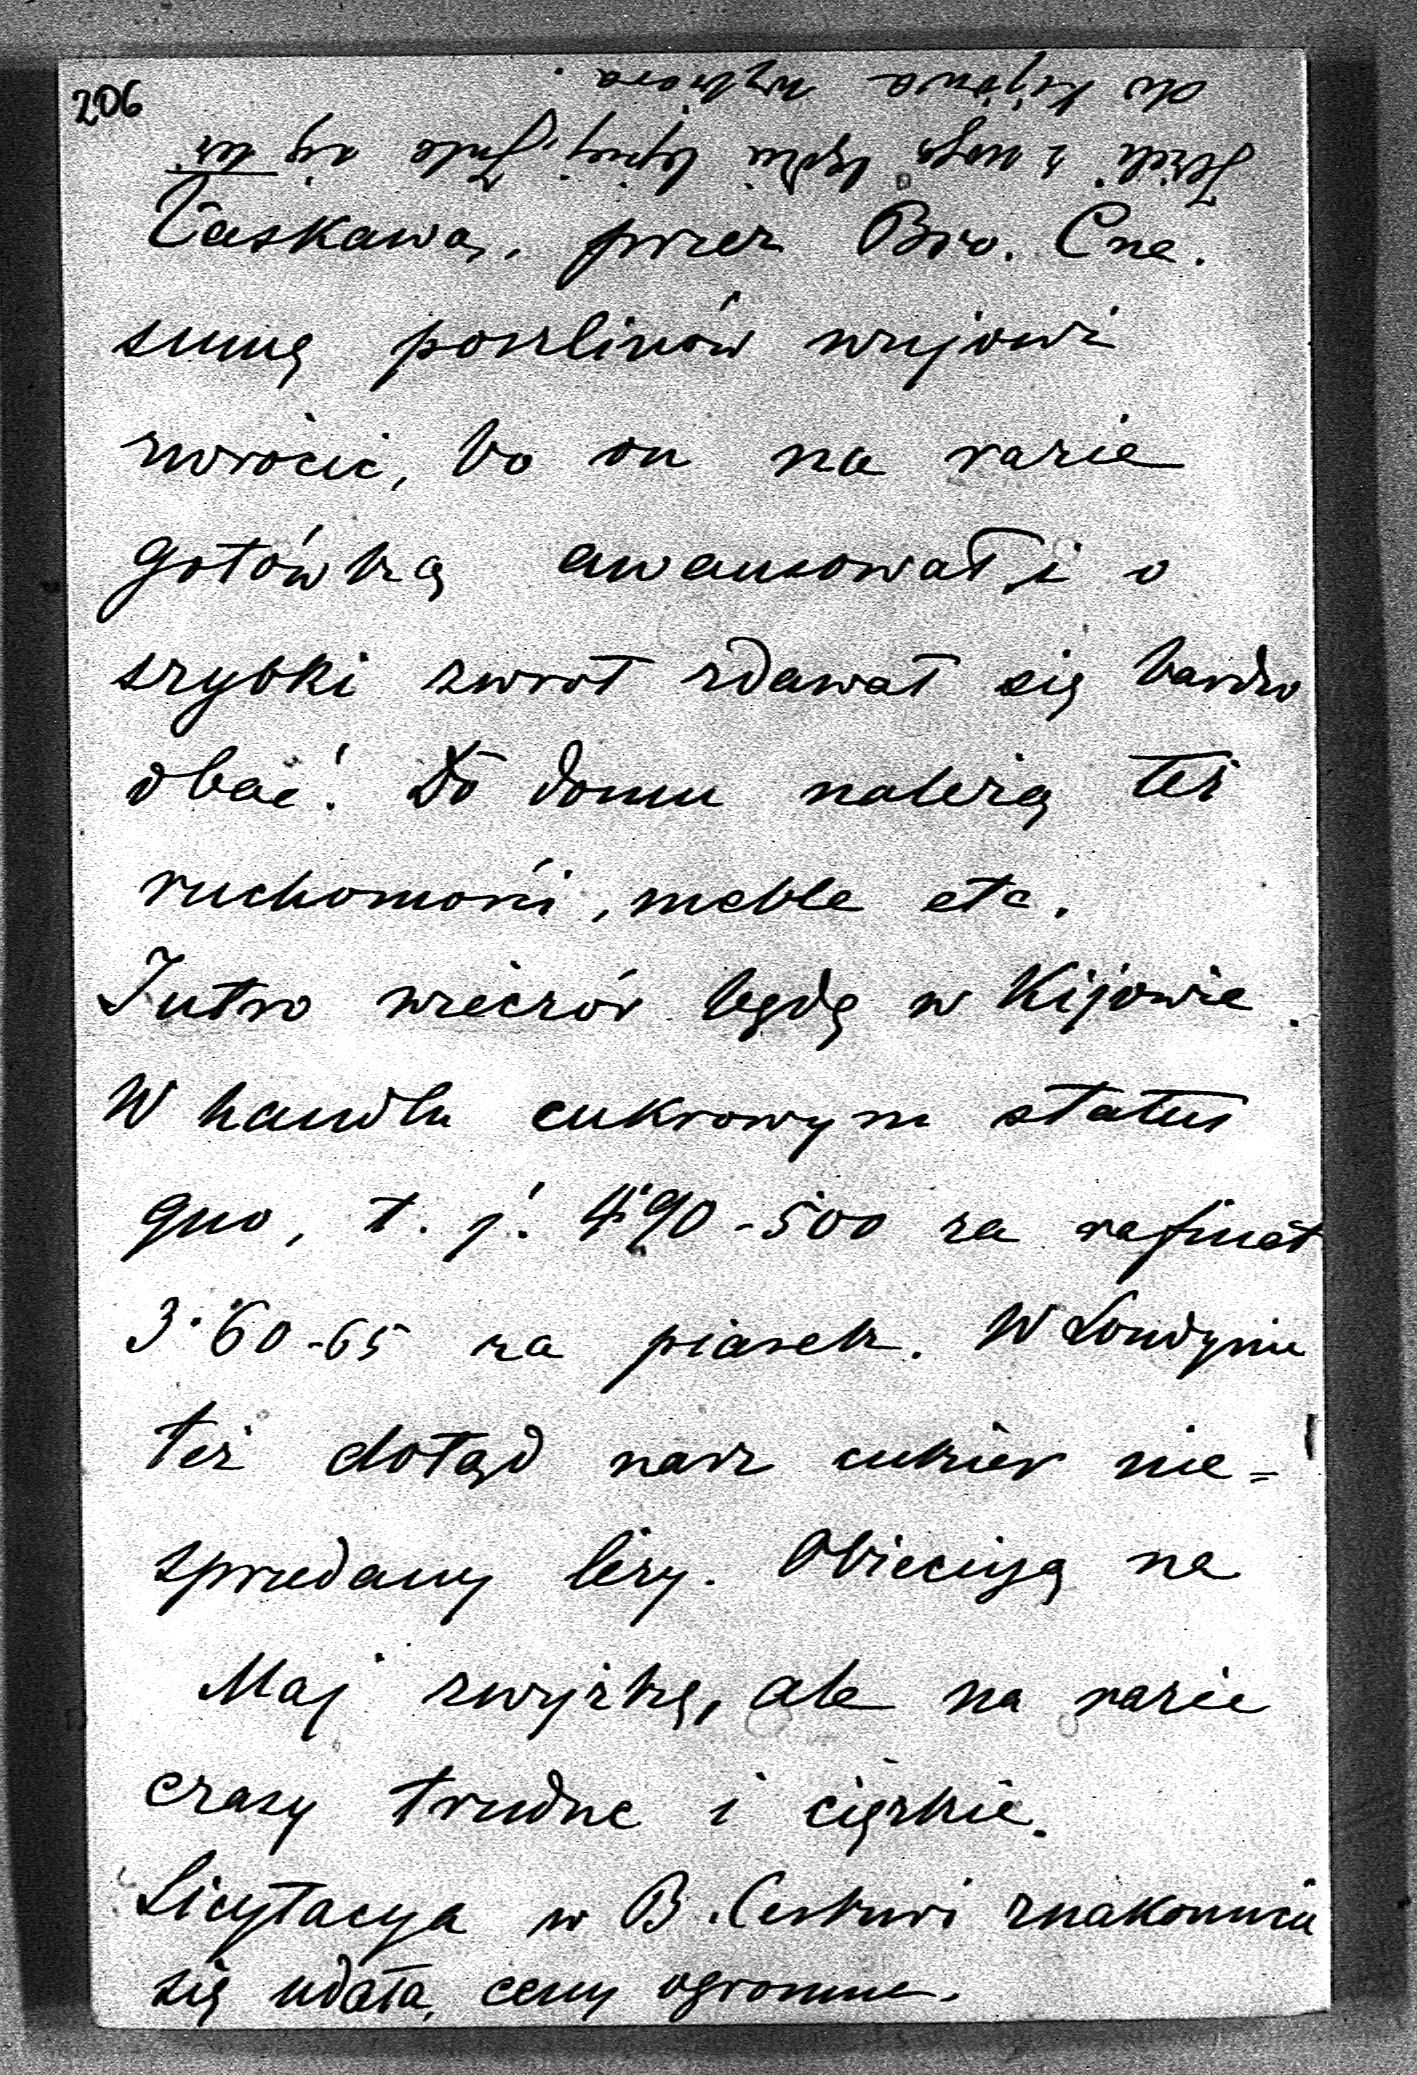 206
Jeżeli z nogą będzie lepiej, Julo się
do Kijowa wybiera.
Łaskawa, przez Bro. Cne.
sumę poszlinów wujowi
zwrócić, bo on na razie
gotówką awansował, i o
szybki zwrot zdawał się bardzo
dbać! Do domu należą też
ruchomości, meble etc.
Jutro wieczór będę w Kijowie.
W handlu cukrowym status
quo, t. j. 4·90-500 za rafinat
3·60-65 za piasek. W Londynie
też dotąd nasz cukier nie=
sprzedany leży. Obiecują na
Maj zwyżkę, ale na razie
czasy trudne i ciężkie.
Licytacya w B. Cerkwi znakomicie
się udała, ceny ogromne.